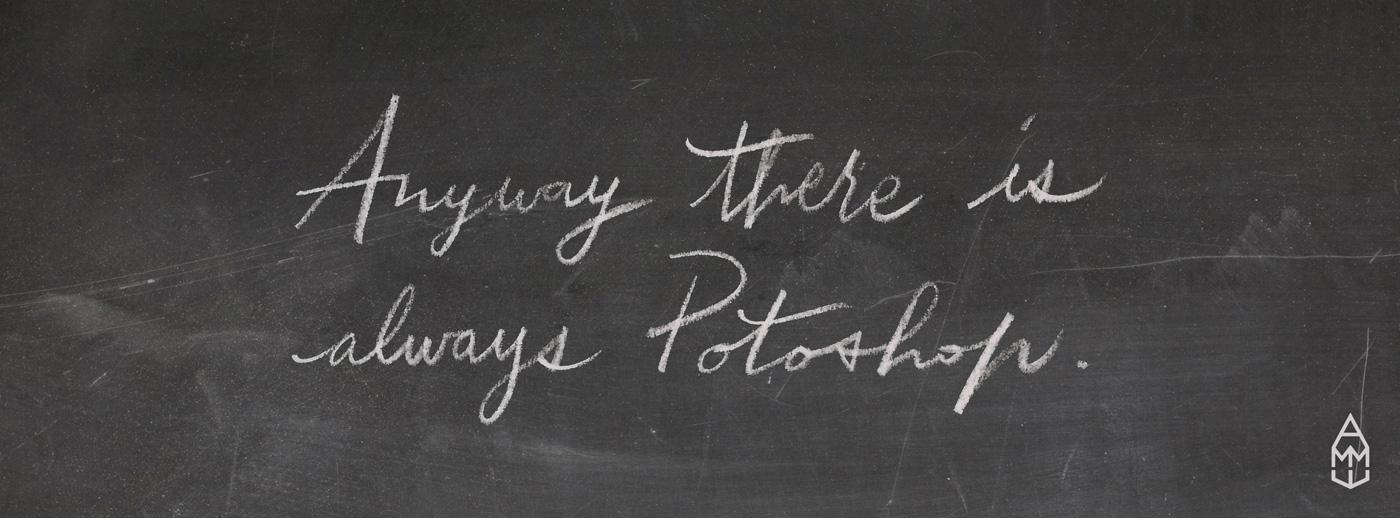 Anyway there is
always Potoshop.